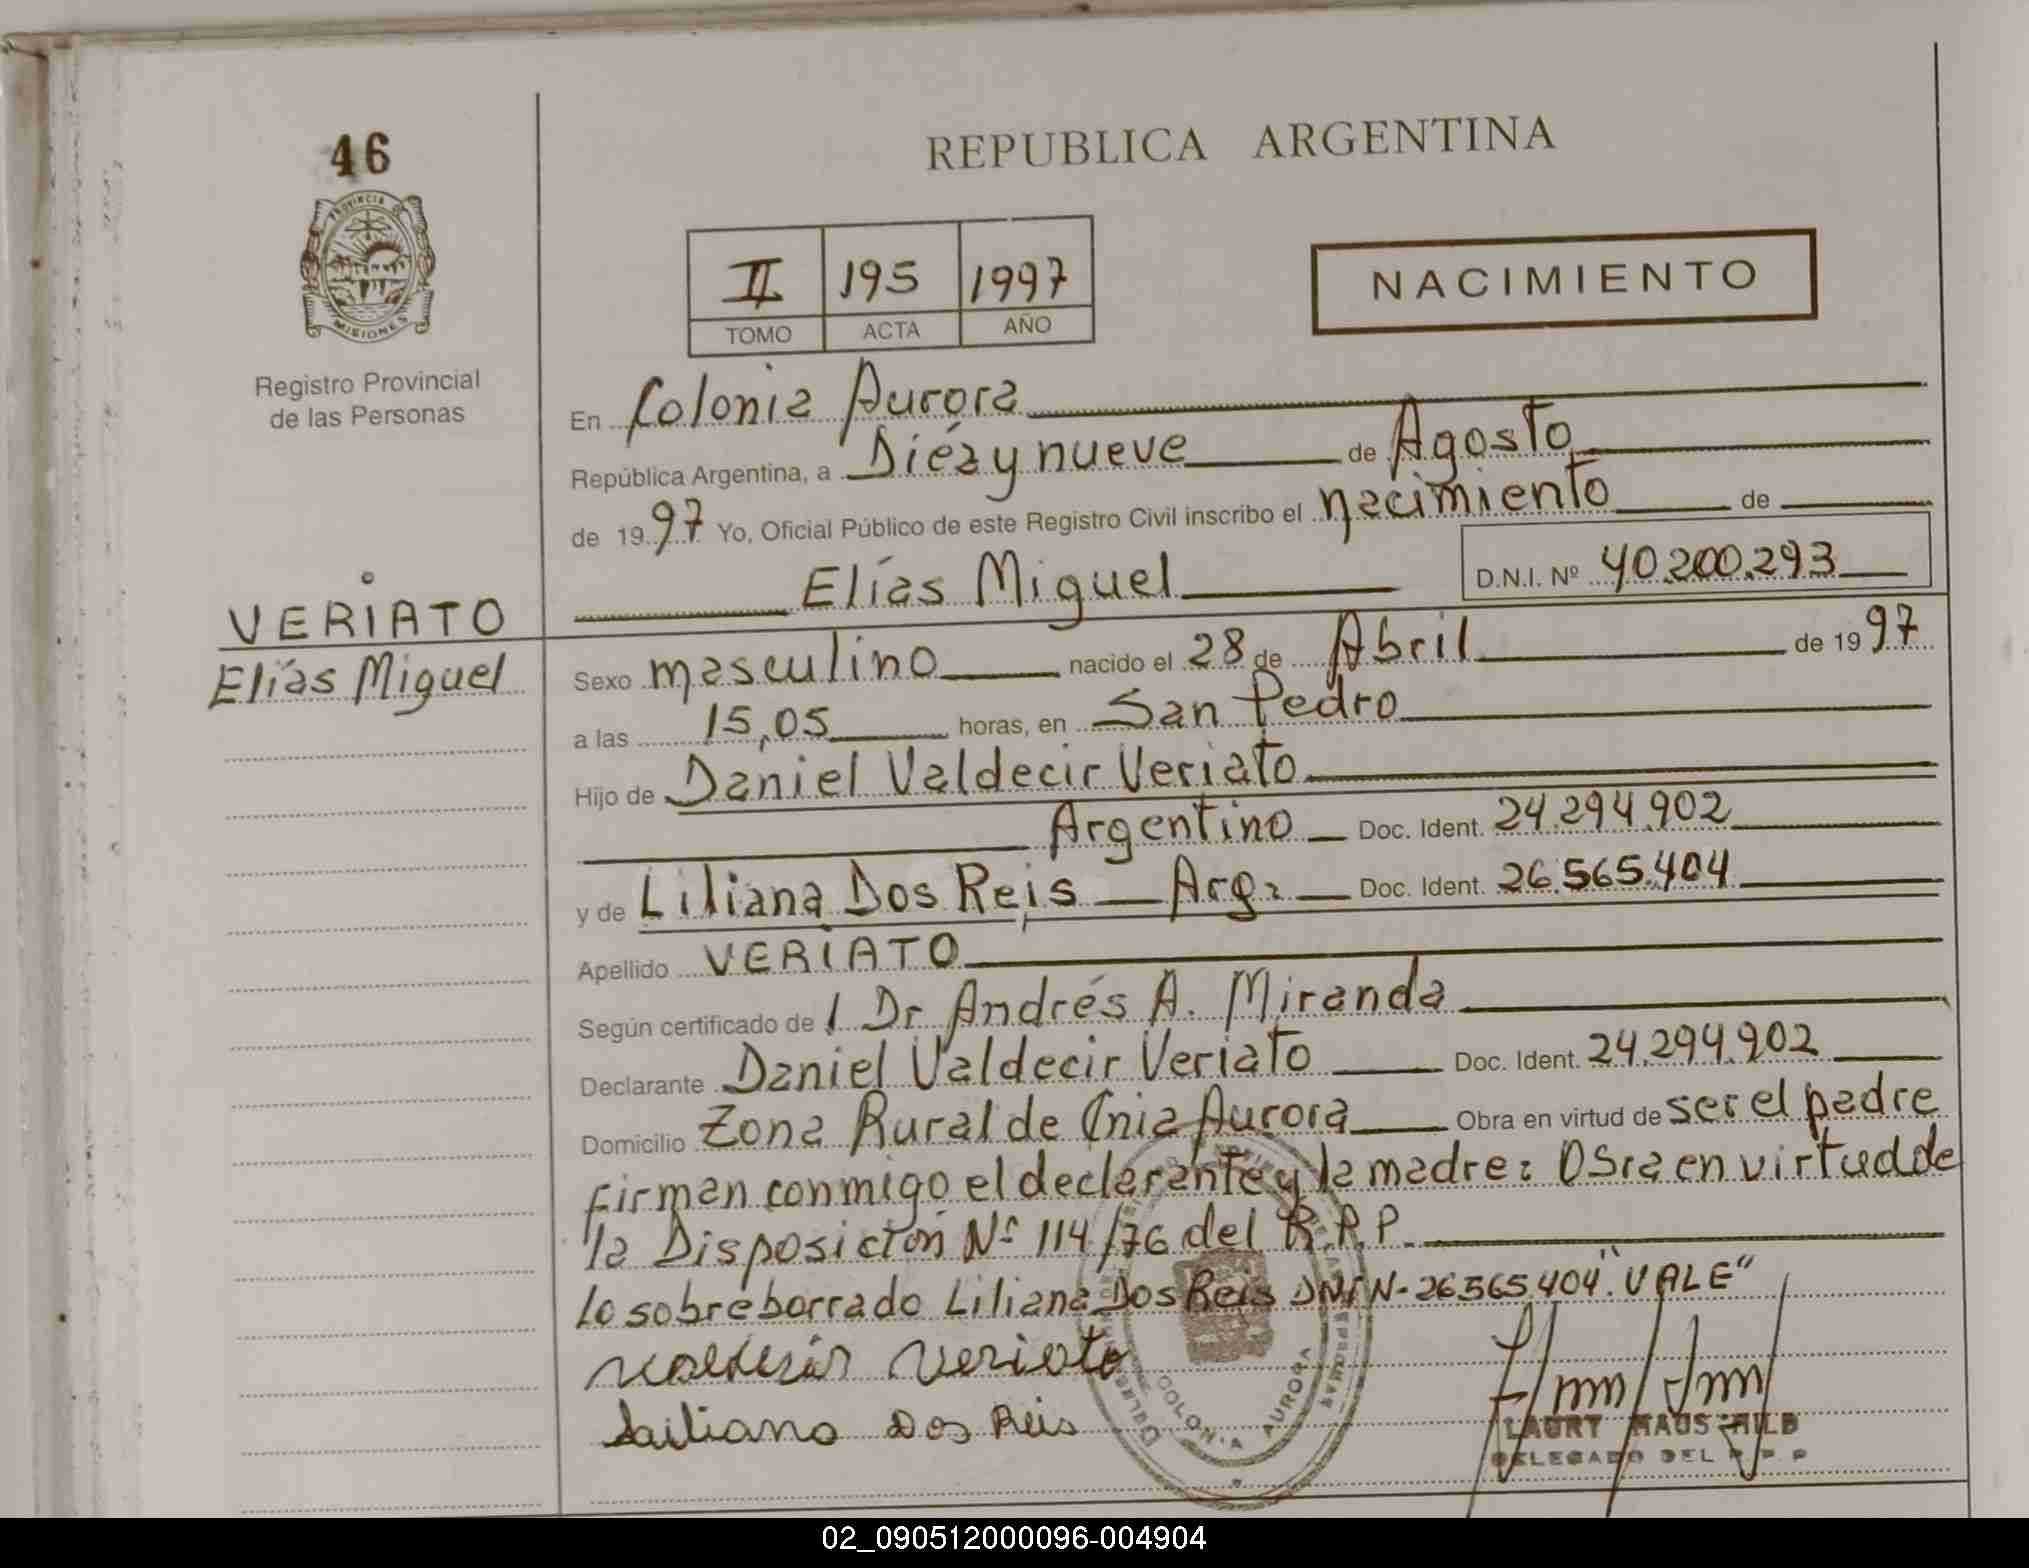 46
PROVINCIA DE
MISIONES
Registro Provincial
de las Personas
VERIATO
Elías Miguel
REPUBLICA ARGENTINA
II 195 1997
TOMO ACTA AÑO
NACIMIENTO
En Colonia Aurora
República Argentina, a Diéz y nueve de Agosto
de 1997 Yo, Oficial Público de este Registro Civil inscribo el nacimiento de
Elías Miguel D.N.I. Nº 40.200.293
Sexo masculino nacido el 28 de Abril de 1997
a las 15,05 horas, en San Pedro
Hijo de Daniel Valdecir Veriato
Argentino Doc. Ident. 24.294.902
y de Liliana Dos Reis Arg. Doc. Ident. 26.565.404
Apellido VERIATO
Según certificado de / Dr Andrés A. Miranda
Declarante Daniel Valdecir Veriato Doc. Ident. 24.294.902
Domicilio Zona Rural de Cnia Aurora Obra en virtud de ser el padre
firman conmigo el declarante y la madre: en virtud de
la Disposición Nº 114/76 del R.P.P.
lo sobreborrado Liliana Dos Reis DNI N- 26565404 "VALE"
Valdecir Veriato
Liliana Dos Reis
COLONIA AURORA
LAURY HAUSCHILD
DELEGADO DEL R.P.P
02_090512000096-004904